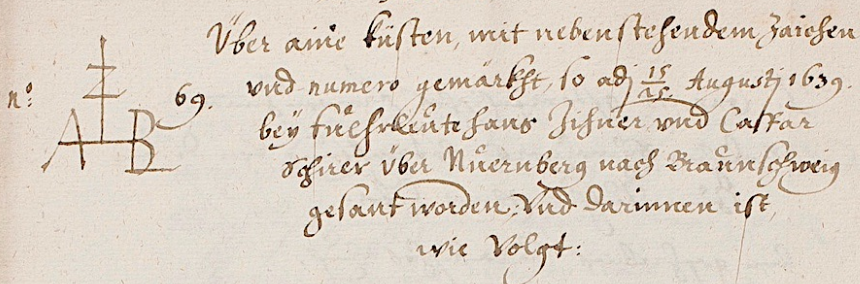 Über aine küsten, mit nebenstehendem Zaichen
nº: Z A B 69. vnd numero gemärkht, so adj 15/25 Augustj 1639.
bey fuehrleute hans Zihner, vnd Caspar
Schirer über Nuernberg nach Braunschweig
gesant worden, Vnd darinnen ist,
wie Volgt: